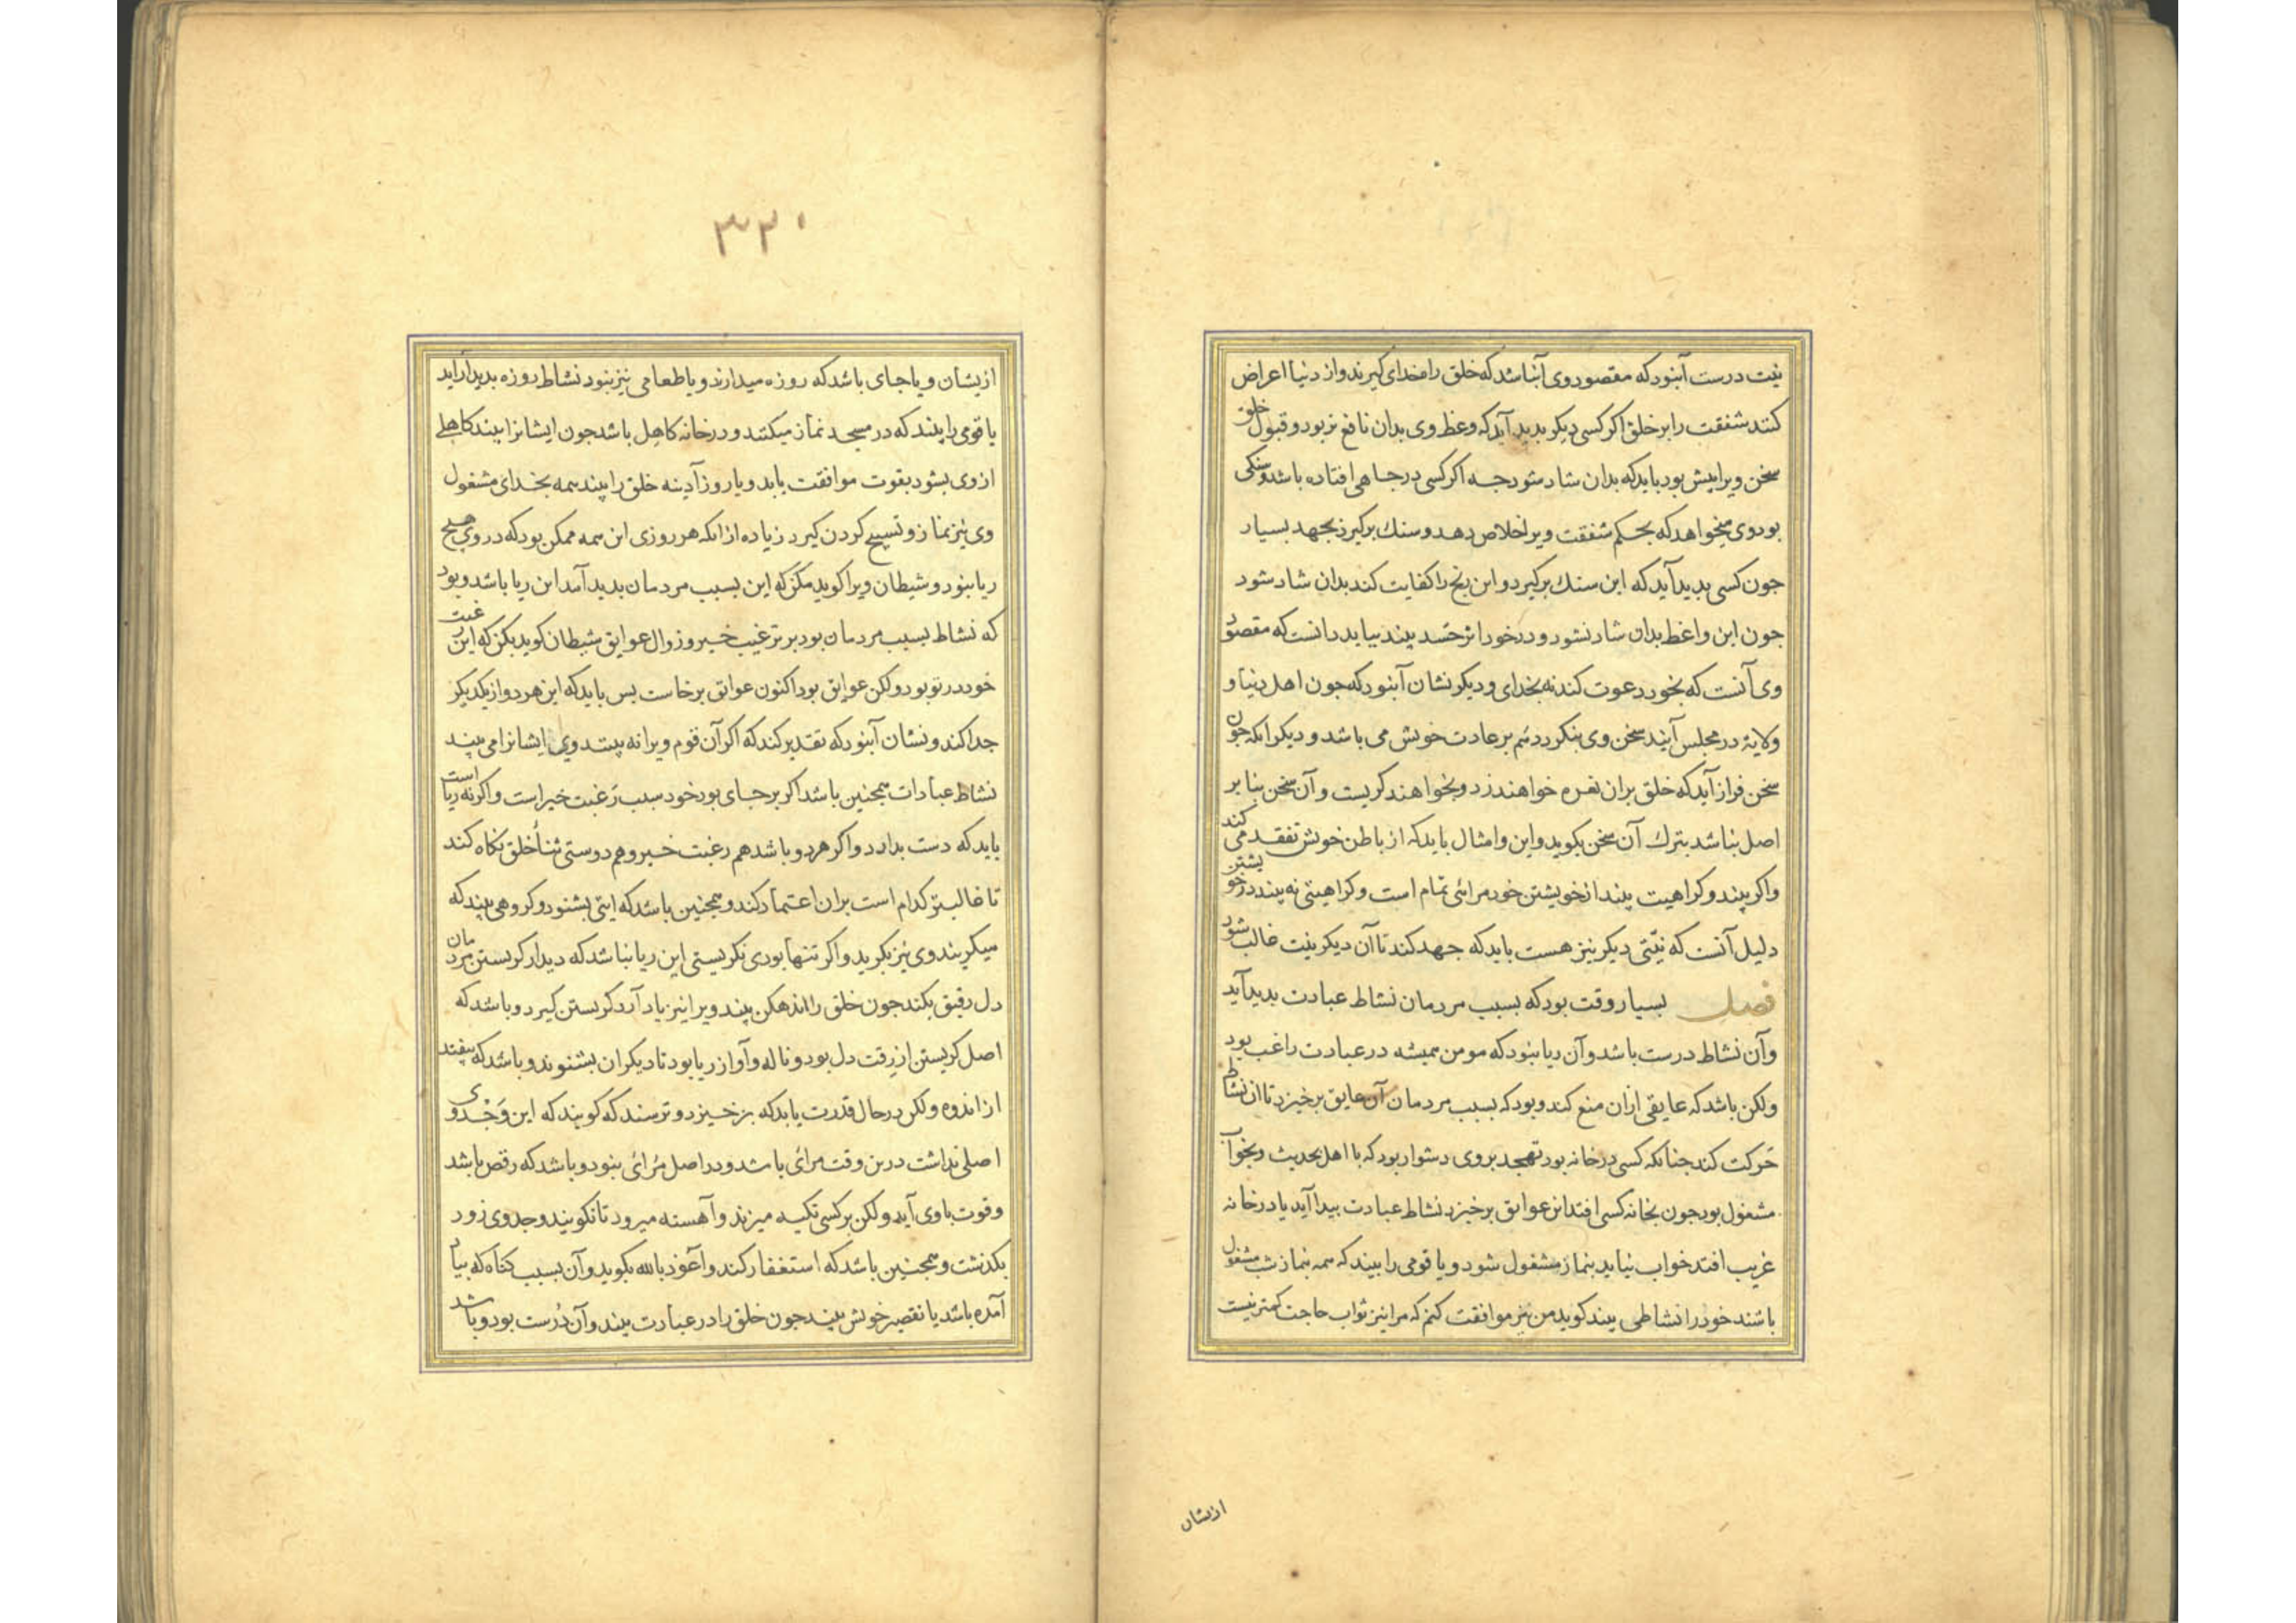 نیت درست آنبود که مقصود وی آنباشد که خلق راه خدای گیرند و از دنیا اعراض
کنند شفقت را بر خلق اکر کسی دیکر بدید آید که وعظ وی بدان نافع تر بود و قبول خلق
سخن ویرا بیش بود باید که بدان شاد شود جه اکر کسی در جاهی افتاده باشد و سنکی
بود وی میخواهد که بحکم شفقت ویرا خلاص دهد و سنك بر کیرد بجهد بسیار
جون کسی بدید آید که این سنك بر کیرد و این رنج را کفایت کند بدان شاد شود
جون این واعظ بدان شاد نشود و در خود اثر حسد بیند بباید دانست که مقصود
وی آنست که بخود دعوت کند نه بخدای و دیکر نشان آنبود که جون اهل دنیا و
ولایة در مجلس آیند سخن وی بنکردد هم بر عادت خویش می باشد و دیکر انکه جون
سخن فراز آید که خلق بران نعره خواهند زد و بخواهند کریست و آن سخن بنا بر
اصل نباشد بترك آن سخن بکوید و این و امثال باید که از باطن خویش تفقد می کند
واکر بیند و کراهیت بیند از خویشتن خود مرائی تمام است و کراهیتی نه بیند در خویشتن
دلیل آنست که نیّتی دیکر نیز هست باید که جهد کند تا آن دیکر نیت غالب شود
فصل بسیار وقت بود که بسبب مردمان نشاط عبادت بدید آید
وآن نشاط درست باشد و آن ریا نبود که مومن همیشه در عبادت راغب بود
ولکن باشد که عایقی ازان منع کند و بود که بسبب مردمان آن عایق برخیزد تا ان نشاط
حَرکت کند جنانکه کسی در خانه بود تهجد بروی دشوار بود که با اهل بحدیث و بخواب
مشغول بود جون بخانه کسی افتد این عوایق برخیزد نشاط عبادت بیدا آید یا در خانه
غریب افتد خواب نیاید بنماز مشغول شود و یا قومی را بیند که همه بنماز شب مشغول
باشند خود را نشاطی بیند کوید من نیز موافقت کنم که مرا نیز ثواب حاجت کمتر نیست
ازیشان
۳۲۰
ازیشان و یا جای باشد که روزه میدارند و یا طعامی نیز نبود نشاط روزه بدیدار آید
یا قومی را بیند که در مسجد نماز میکنند و در خانه کاهل باشد جون ایشانرا بیند کاهلی
از وی بشود بقوت موافقت یابد و یا روز آدینه خلق را بیند همه بخدای مشغول
وی نیز نماز و تسبیح کردن کیرد زیاده از انکه هر روزی این همه ممکن بود که در وی هیچ
ریا نبود و شیطان ویرا کوید مکن که این بسبب مردمان بدید آمد این ریا باشد و بود
که نشاط بسبب مردمان بود بر ترغیب خیر و زوال عوایق شیطان کوید بکن که این رغبت
خود در تو بود ولکن عوایق بود اکنون عوایق برخاست بس باید که این هر دو از یکدیکر
جدا کند و نشان آنبود که تقدیر کند که اکر آن قوم ویرا نه بینند و وی ایشانرا می بیند
نشاط عبادات همجنین باشد اکر بر جای بود خود سبب رَغبت خیر است واکر نه ریا است
باید که دست بدارد و اکر هر دو باشد هم رغبت خیر و هم دوستی ثنأ خلق نکاه کند
تا غالبتر کدام است بران اعتماد کند و همجنین باشد که ایتی بشنود و کروهی بیند که
میکریند وی نیز بکرید واکر تنها بودی نکریستی این ریا نباشد که دیدار کریستن مردمان
دل رقیق بکند جون خلق را اندهکن بیند ویرا نیز یاد آرد کریستن کیرد و باشد که
اصل کریستن از رقت دل بود و ناله و آواز ریا بود تا دیکران بشنوند و باشد که بیفتد
از اندوه ولکن در حال قدرت یابد که بر خیزد و ترسد که کویند که این وَجْد وی
اصلی نداشت درین وقت مرائی باشد و در اصل مُرائی نبود و باشد که رقص باشد
و قوت با وی آید ولکن بر کسی تکیه میزند و آهسته میرود تا نکویند وجد وی زود
بکذشت و همجنین باشد که استغفار کند و اَعُوذ بالله بکوید و آن بسبب کناه که بیاد
آمده باشد یا تقصیر خویش بیند جون خلق را در عبادت بیند و آن دُرست بود و باشد